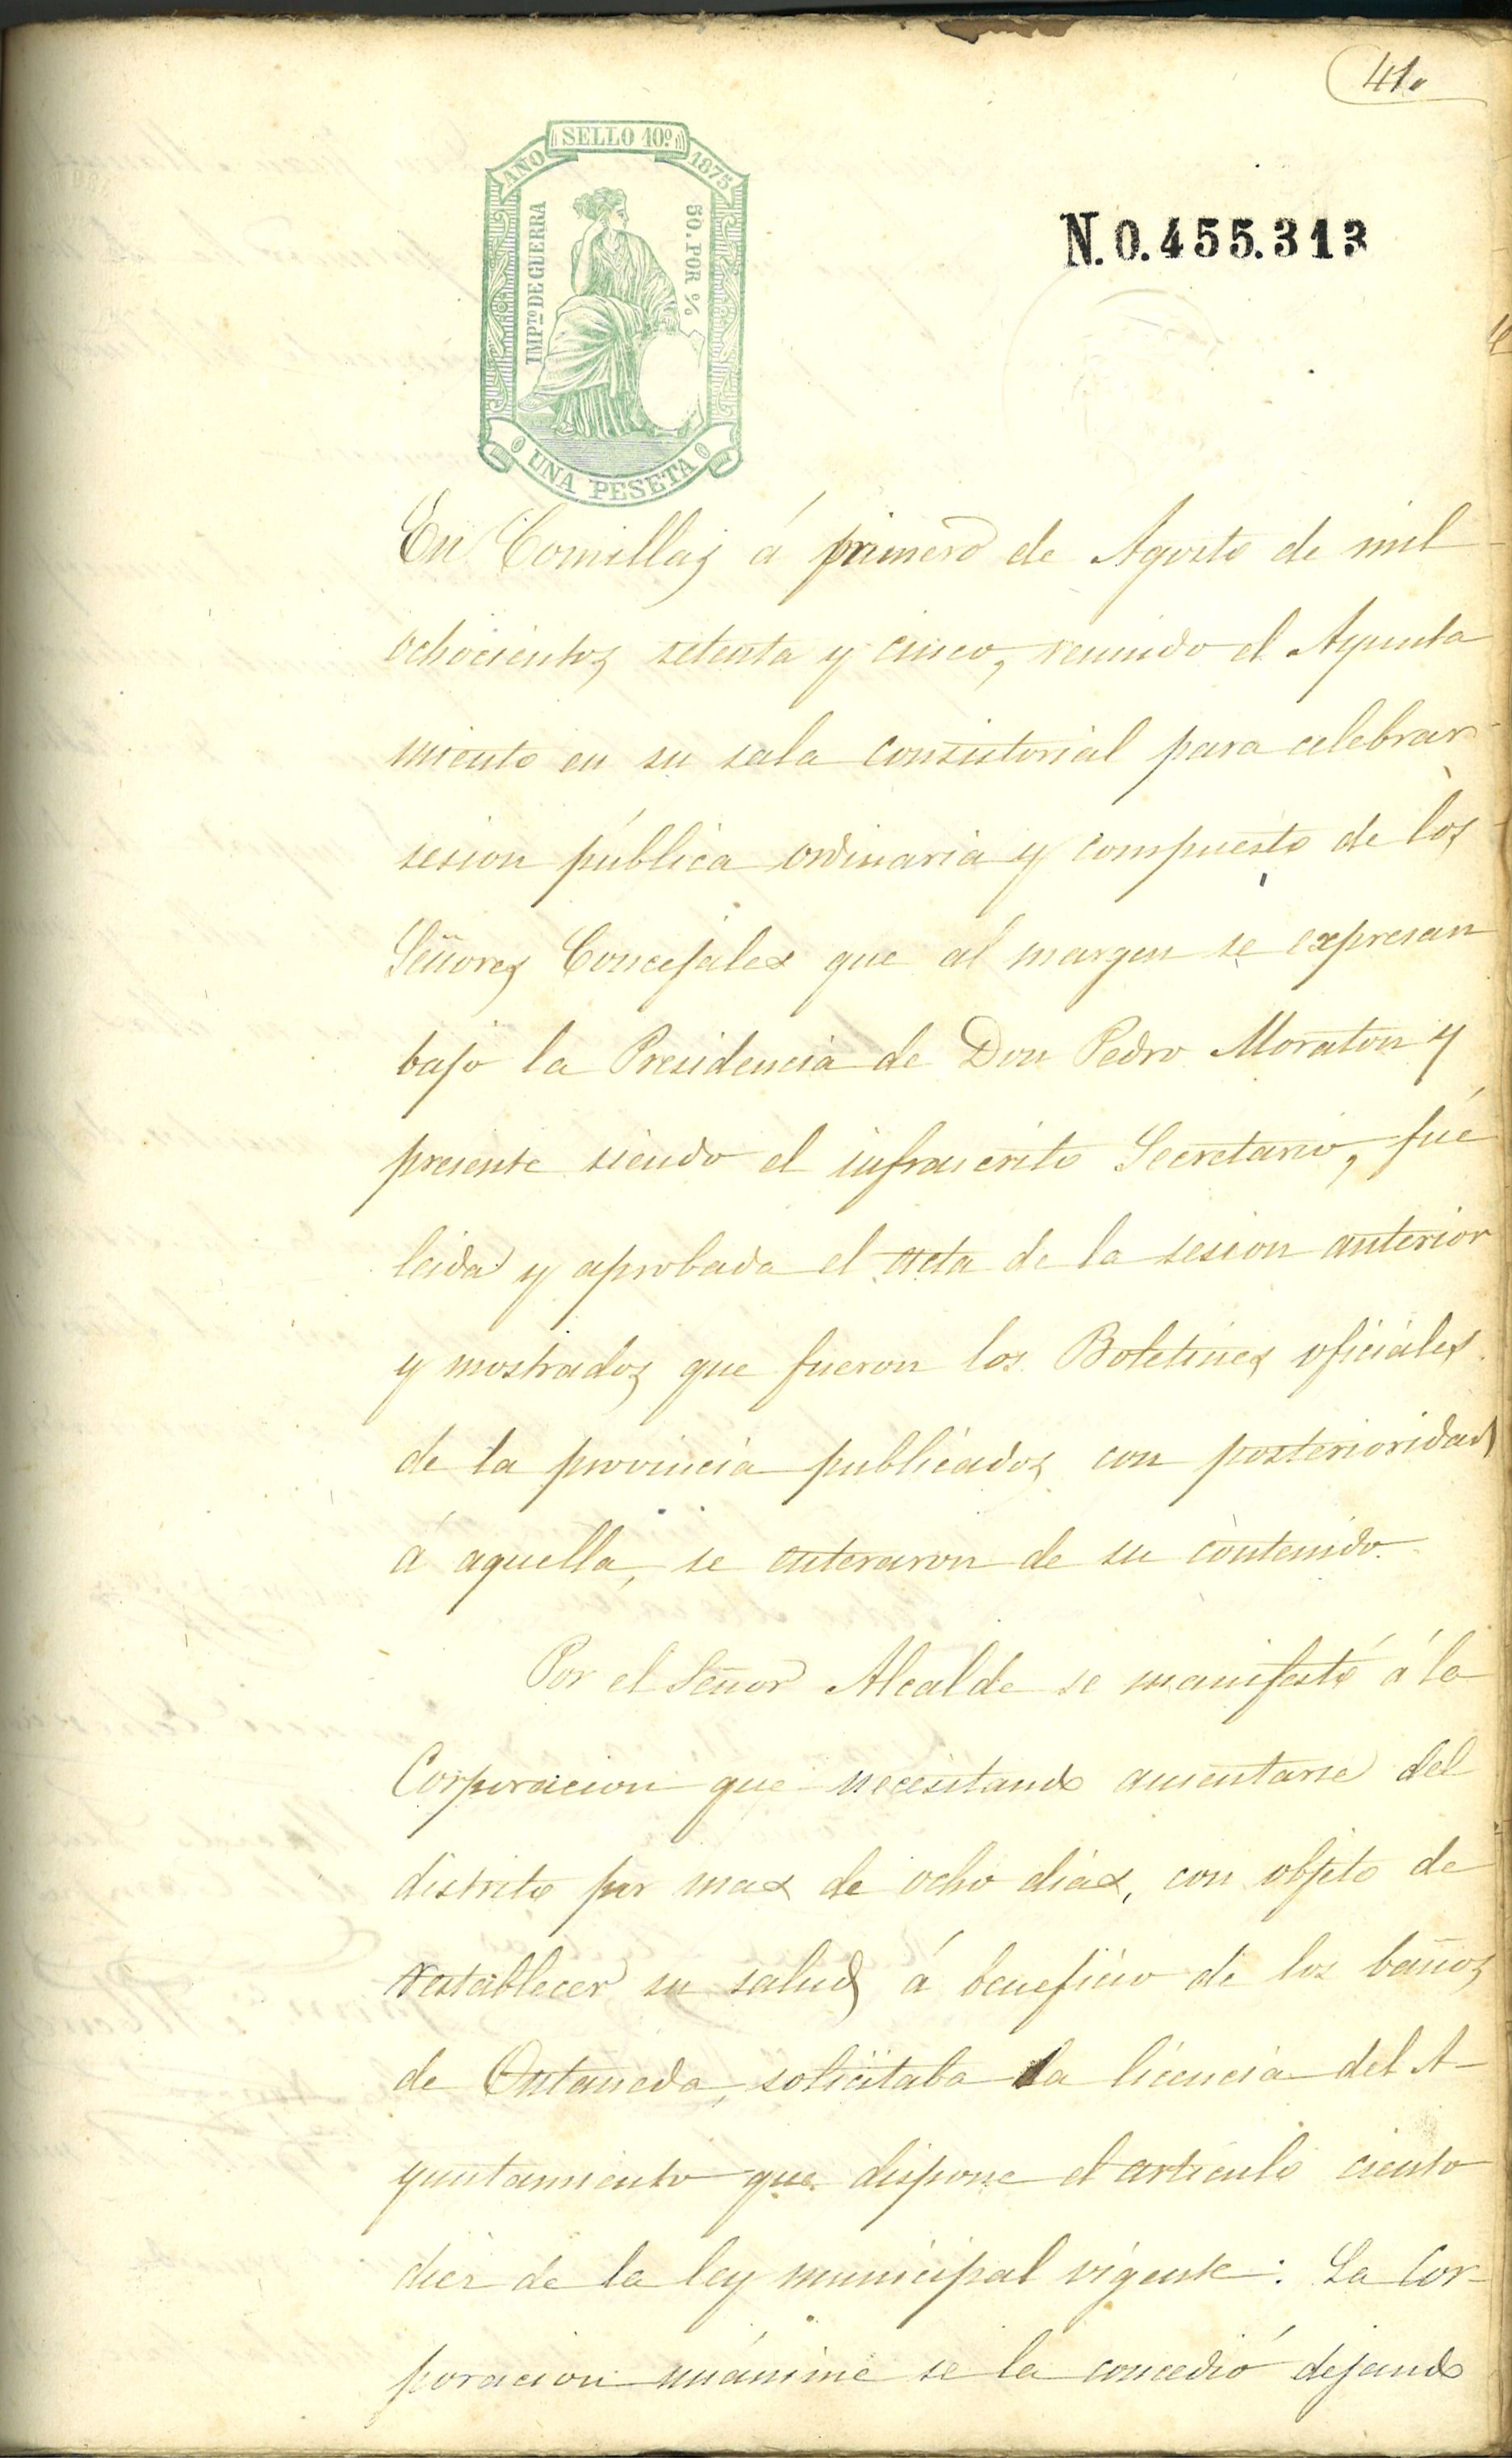 41.
SELLO 10º
AÑO 1875
IMPTO DE GUERRA
50. POR %
UNA PESETA
N. 0.455.313
En Comillas á primero de Agosto de mil
ochocientos setenta y cinco, reunido el Ayunta
miento en su sala consistorial para celebrar
sesion pública ordinaria y compuesto de los
Señores Concejales que al margen se expresan
bajo la Presidencia de Don Pedro Moraton y
presente siendo el infrascrito Secretario, fué
leida y aprobada el acta de la sesion anterior
y mostrados que fueron los Boletines oficiales
de la provincia publicados con posterioridad
á aquella, se enteraron de su contenido.
Por el Señor Alcalde se manifestó á la
Corporacion que necesitando ausentarse del
distrito por mas de ocho dias, con objeto de
restablecer su salud á beneficio de los baños
de Ontaneda, solicitaba la licencia del A-
yuntamiento que dispone el artículo ciento
diez de la ley municipal vigente: La Cor-
poracion unánime se la concedió dejando